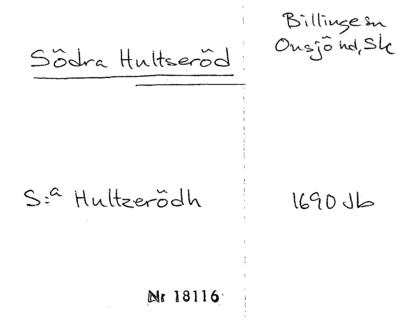 Billinge sn
Onsjö hd, Sk
Södra Hultseröd
S:a Hultzerödh
1690 Jb
Nr 18116